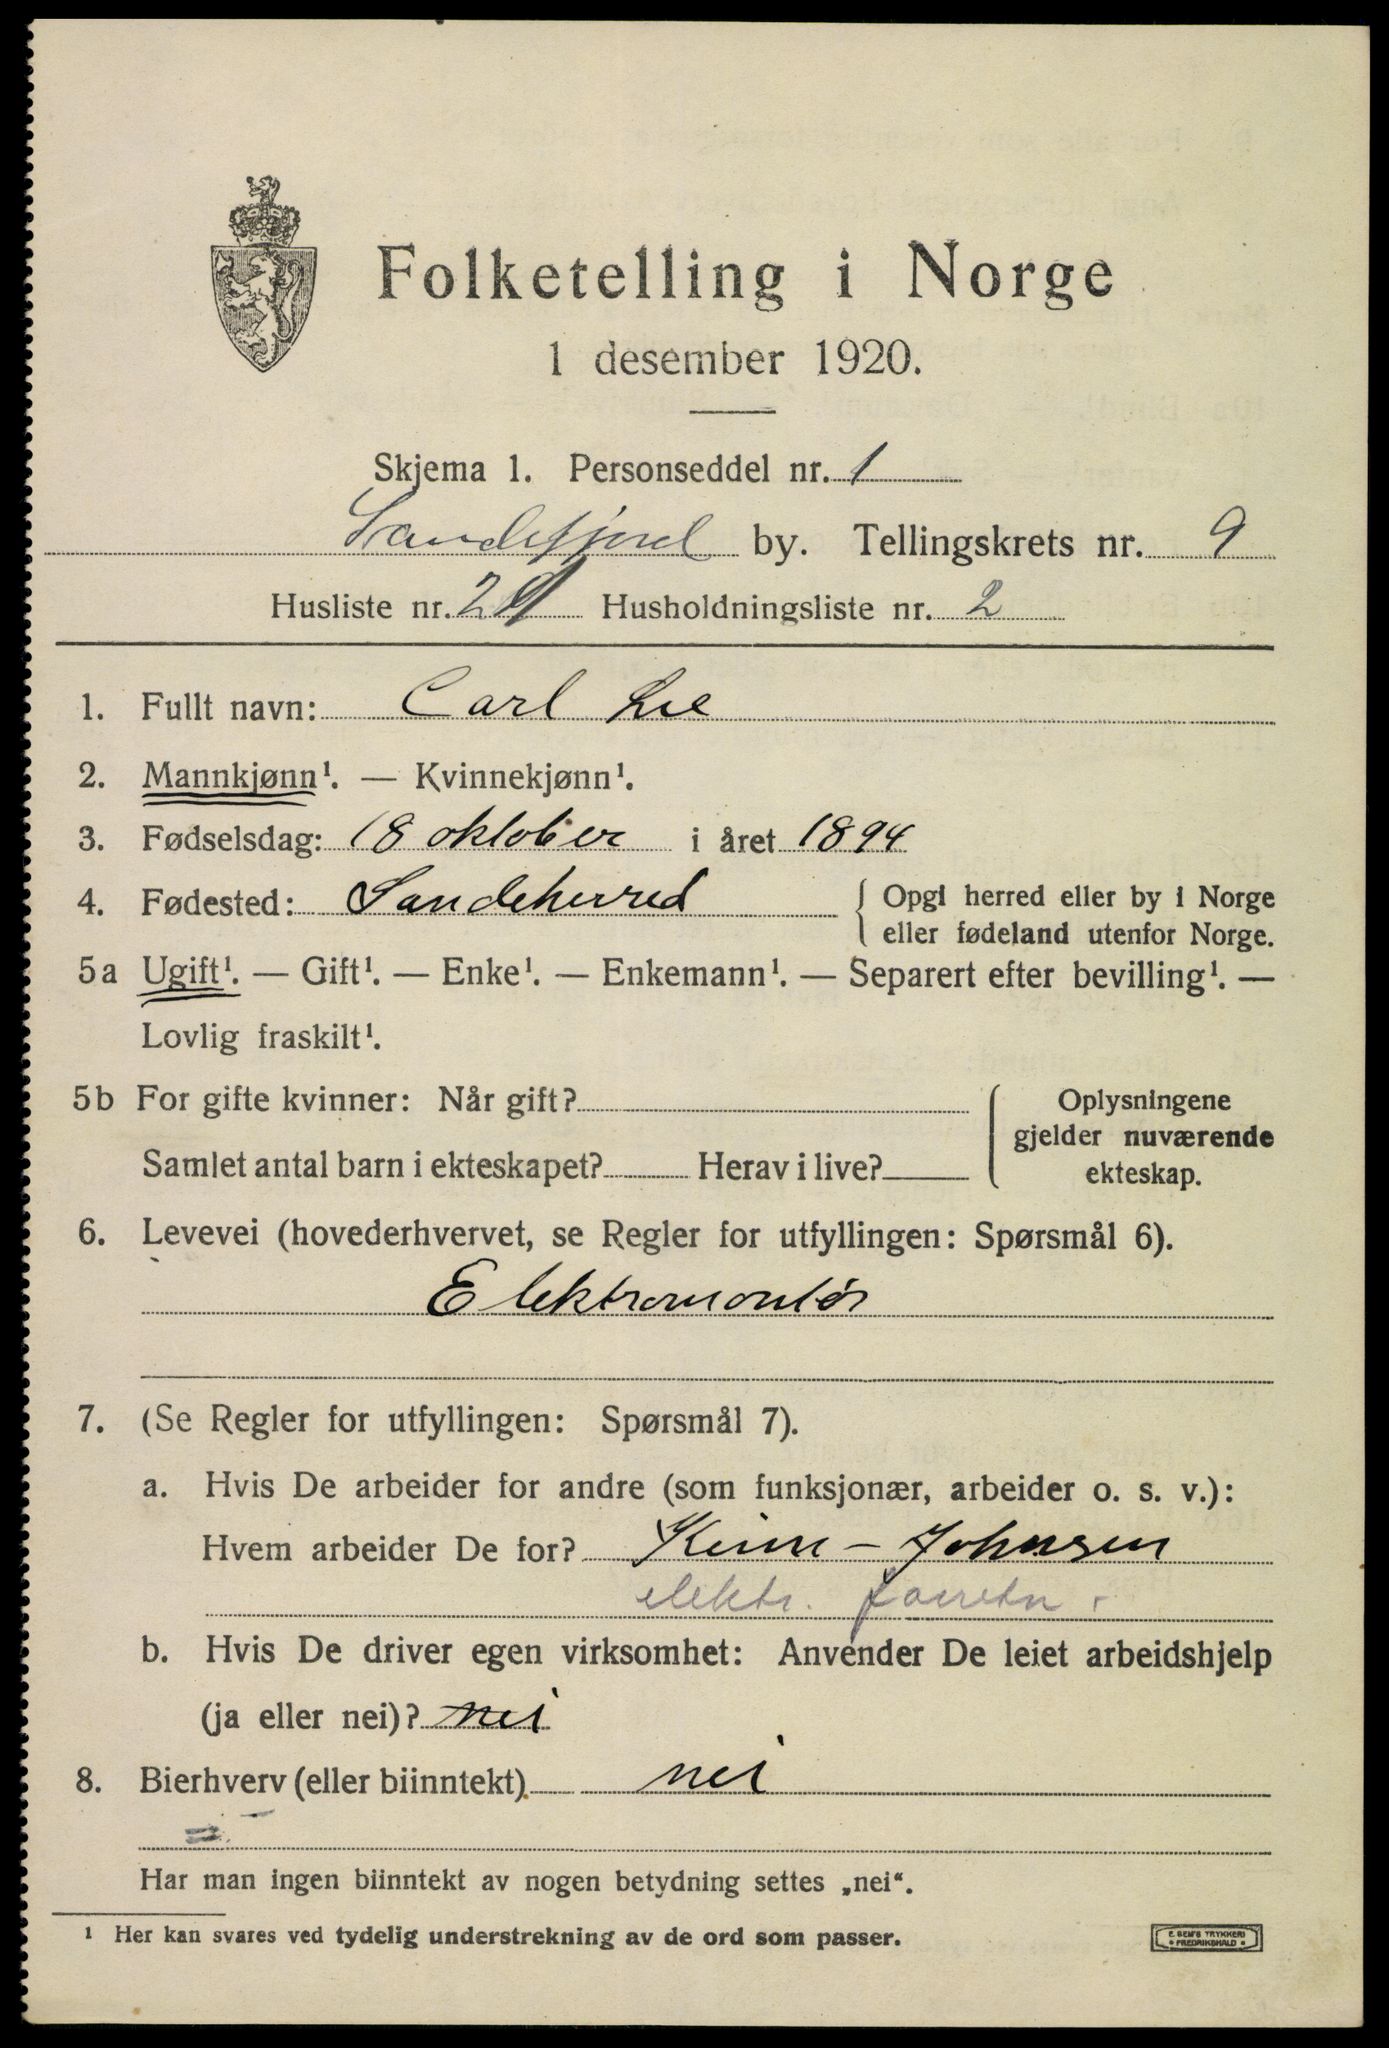 Folketelling i Norge
1 desember 1920.
Skjema 1. Personseddel nr. 1
Sandefjord by. Tellingskrets nr. 9
Husliste nr. 29 Husholdningsliste nr. 2
1. Fullt navn: Carl Lie
2. Mannkjønn¹. — Kvinnekjønn¹.
3. Fødselsdag: 18 oktober i året 1894
4. Fødested: Sandeherred { Opgi herred eller by i Norge
eller fødeland utenfor Norge.
5a Ugift¹. — Gift¹. — Enke¹. — Enkemann¹. — Separert efter bevilling¹. —
Lovlig fraskilt¹.
5b For gifte kvinner: Når gift? Oplysningene
gjelder nuværende
Samlet antal barn i ekteskapet? Herav i live? ekteskap.
6. Levevei (hovederhvervet, se Regler for utfyllingen: Spørsmål 6).
Elektromontør
7. (Se Regler for utfyllingen: Spørsmål 7).
a. Hvis De arbeider for andre (som funksjonær, arbeider o. s. v.):
Hvem arbeider De for? - Johnsen
elektr. forretn.
b. Hvis De driver egen virksomhet: Anvender De leiet arbeidshjelp
(ja eller nei)? nei
8. Bierhverv (eller biinntekt) nei
Har man ingen biinntekt av nogen betydning settes „nei“.
¹ Her kan svares ved tydelig understrekning av de ord som passer.
E. SEM'S TRYKKERI
• FREDRIKSHALD •